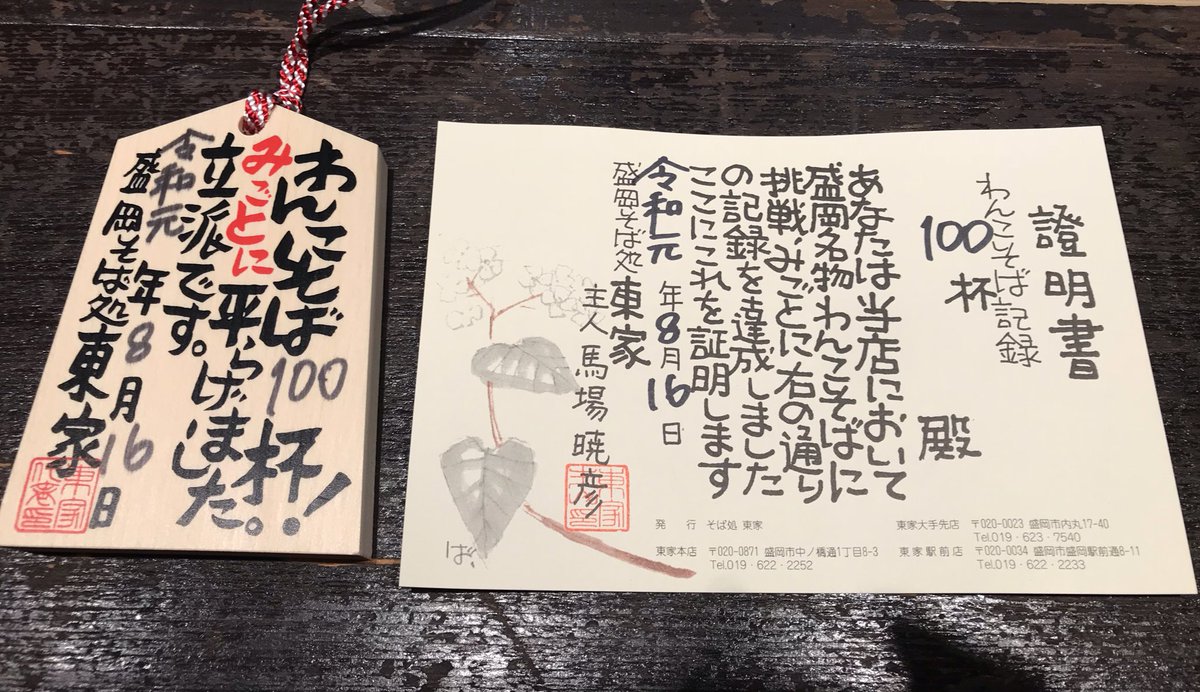 わんこそば100杯！
みごとに平らげました。
立派です。
令和元年8月16日
盛岡そば処東家
證明書
わんこそば記録
100杯
殿
あなたは当店において
盛岡名物わんこそばに
挑戦、みごとに右の通り
の記録を達成しました
ここにこれを証明します
令和元年8月16日
盛岡そば処東家
主人馬場暁彦
ば、
発 行 そば処 東家
東家本店 〒020-0871 盛岡市中ノ橋通1丁目8-3
Tel.019・622・2252
東家大手先店 〒020-0023 盛岡市内丸17-40
Tel.019・623・7540
東家駅前店 〒020-0034 盛岡市盛岡駅前通8-11
Tel.019・622・2233